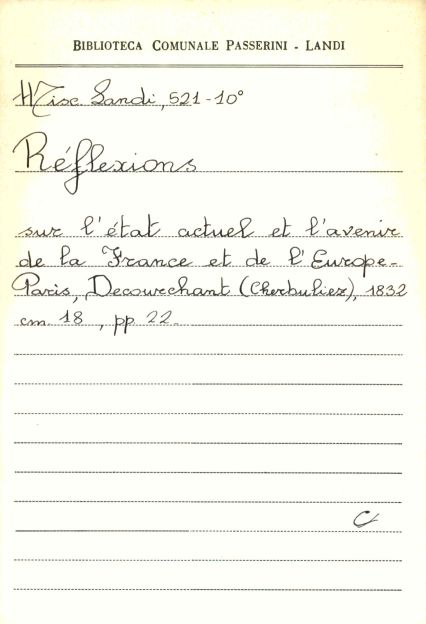 BIBLIOTECA COMUNALE PASSERINI - LANDI
Misc. Landi, 521-10°
Réflexions
sur l'état actuel et l'avenir
de la France et de l'Europe-
Paris, Decourchant (Cherbuliez), 1832
cm. 18 , pp 22-
C